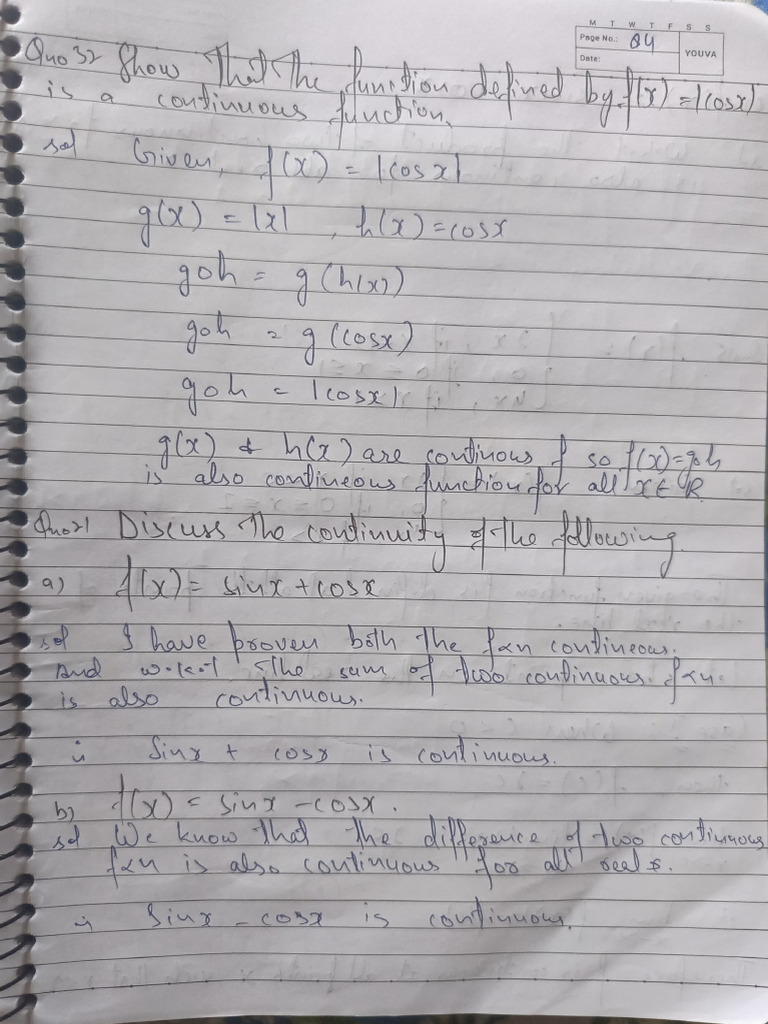 M T W T F S S
Page No.: 04
YOUVA
Date:
Quo 32 Show That the function defined by f(x) = |cosx|
is a continuous function.
sol Given, f(x) = |cosx|
g(x) = |x| , h(x) = cosx
goh = g(h(x))
goh = g(cosx)
goh = |cosx|
g(x) & h(x) are continuous f so f(x)=goh
is also contineous function for all x ∈ R
Quo 21 Discuss The continuity of The following.
a) f(x) = sinx + cosx
sol I have proven both The fxn contineous.
And w.k.t The sum of two continuous fxn.
is also continuous.
∴ Sinx + cosx is continuous.
b) f(x) = sinx - cosx.
sol We know That The difference of two continuous
fxn is also continuous for all reals.
∴ Sinx - cosx is continuous.